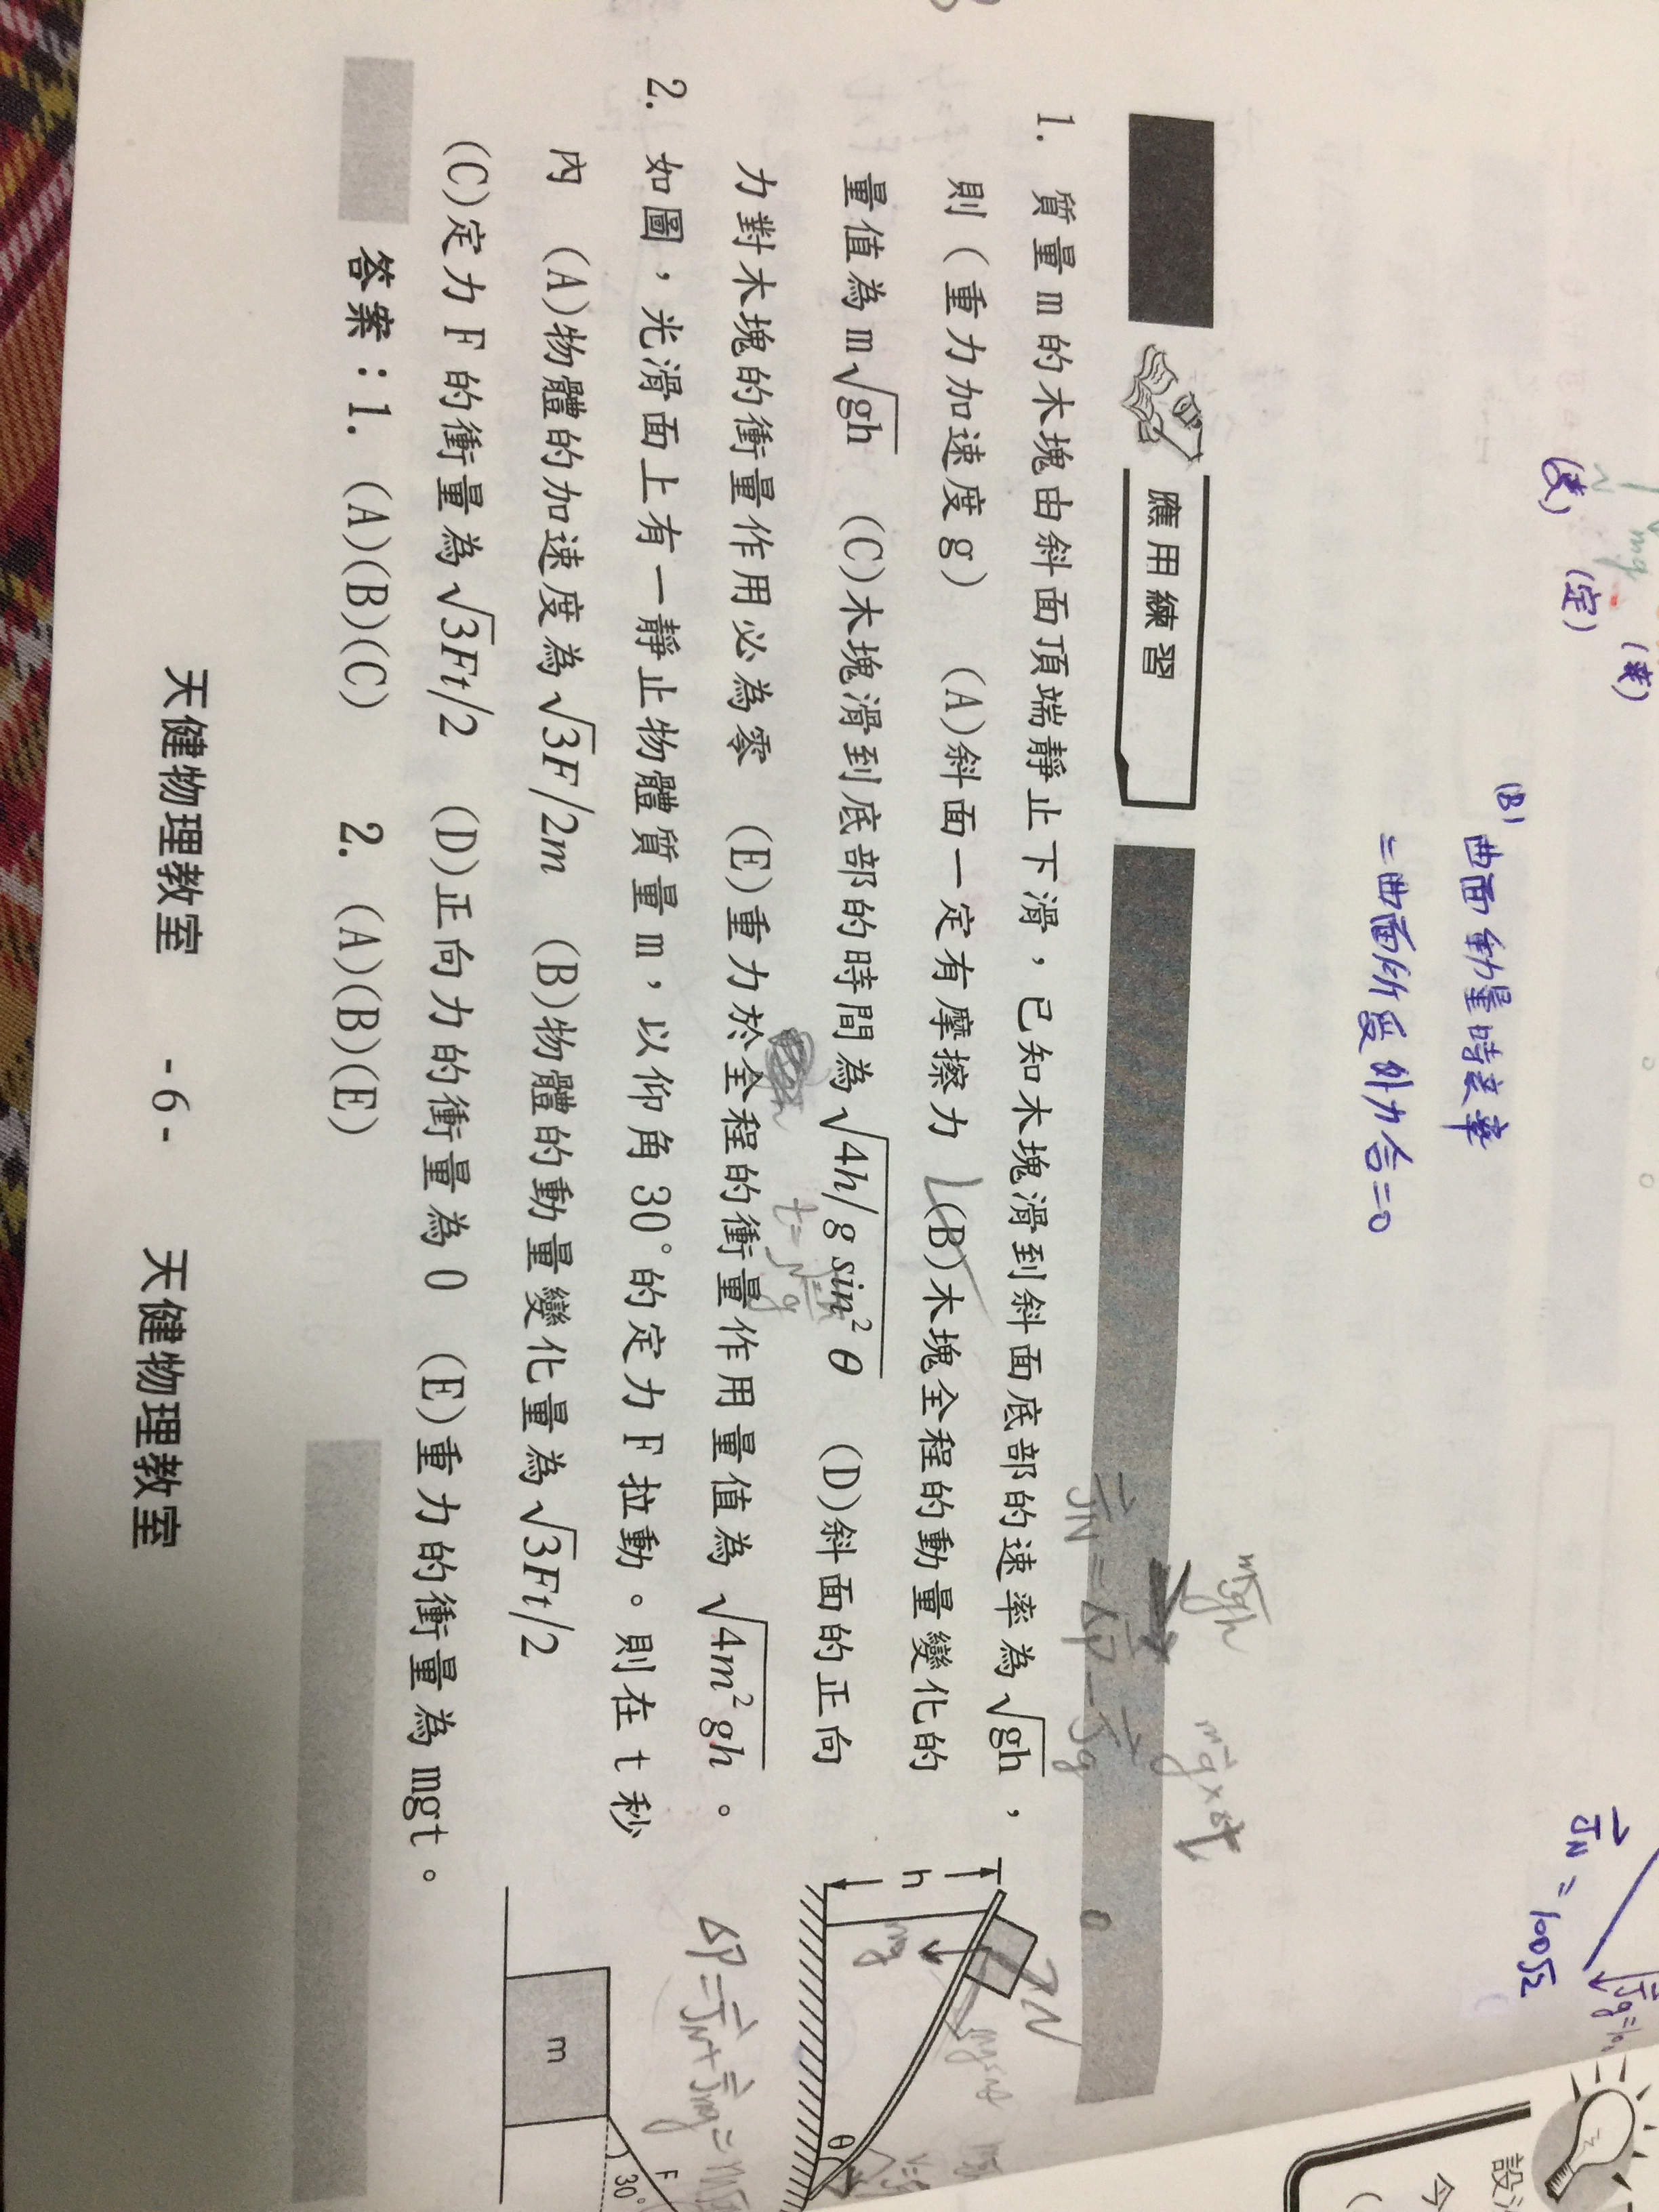 (B) 曲面動量時變率
=曲面所受外力合=0
(定)
J_N = 100√2
應用練習
1. 質量m的木塊由斜面頂端靜止下滑,已知木塊滑到斜面底部的速率為√gh,
則(重力加速度g) (A)斜面一定有摩擦力 (B)木塊全程的動量變化的
量值為m√gh (C)木塊滑到底部的時間為√4h/g sin²θ (D)斜面的正向
力對木塊的衝量作用必為零 (E)重力於全程的衝量作用量值為√4m²gh。
h
mg
N
θ
2. 如圖,光滑面上有一靜止物體質量m,以仰角30°的定力F拉動。則在t秒
內 (A)物體的加速度為√3F/2m (B)物體的動量變化量為√3Ft/2
(C)定力F的衝量為√3Ft/2 (D)正向力的衝量為0 (E)重力的衝量為mgt。
m
F
30°
答案:1. (A)(B)(C) 2. (A)(B)(E)
天健物理教室 -6- 天健物理教室
m√gh